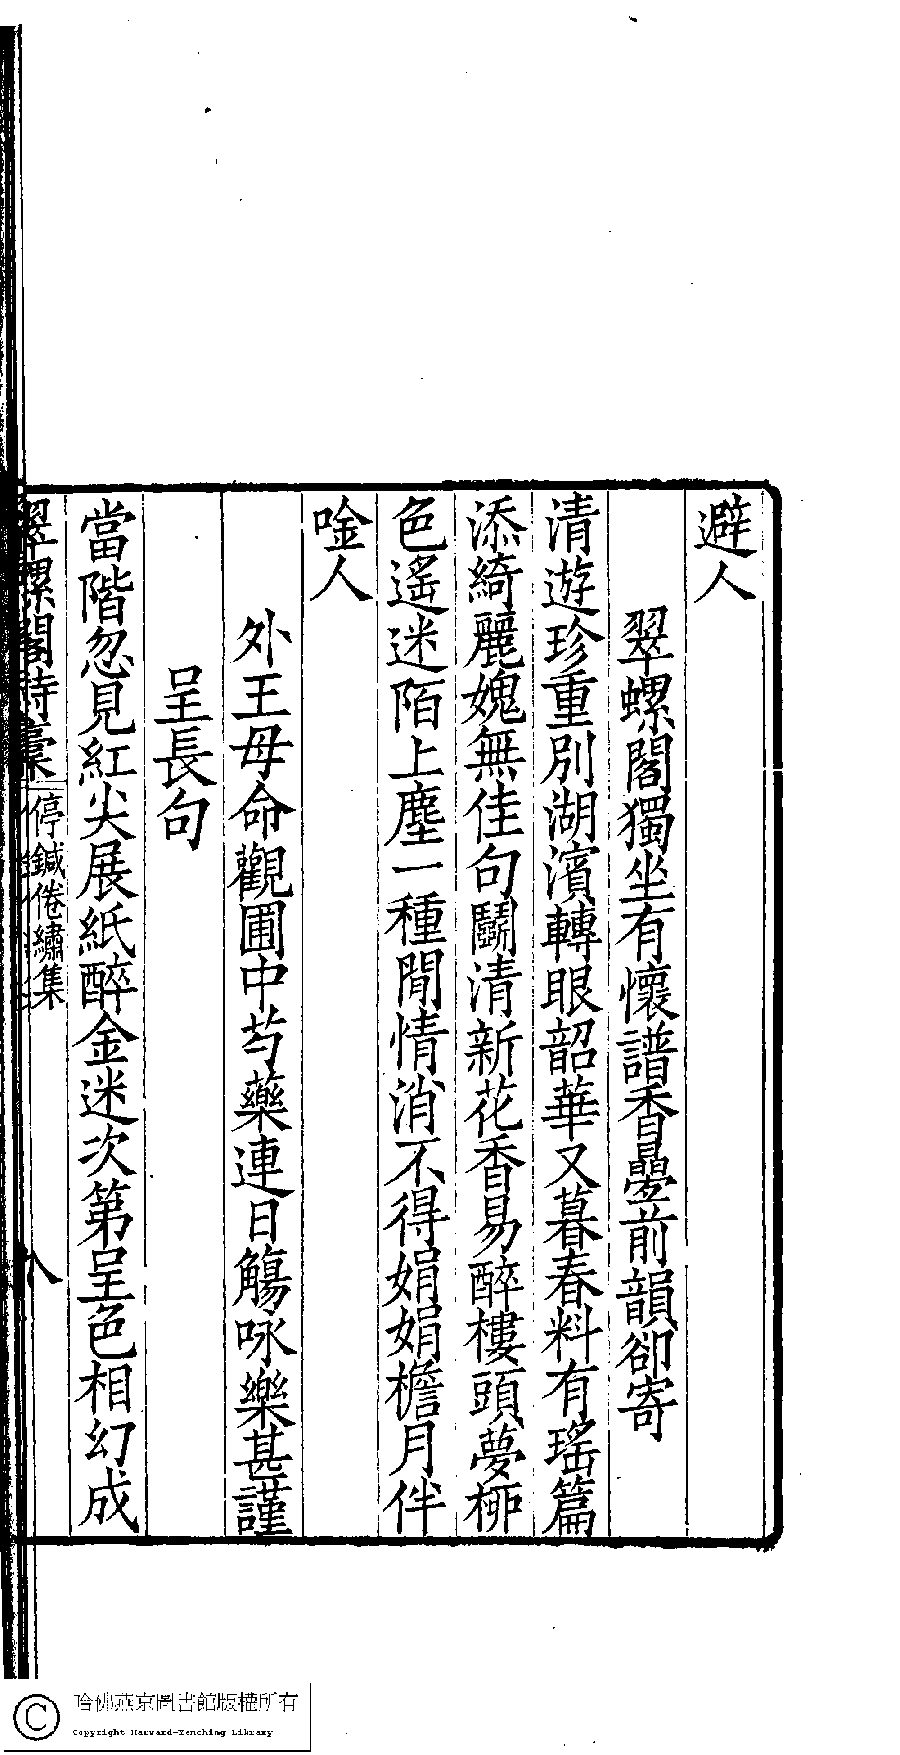 避人
翠螺閣獨坐有懷譜香曇前韻卻寄
清遊珍重別湖濱轉眼韶華又暮春料有瑤篇
添綺麗媿無佳句鬬清新花香易醉樓頭夢柳
色遙迷陌上塵一種閒情消不得娟娟檐月伴
唫人
外王母命觀圃中芍藥連日觴咏樂甚謹
呈長句
當階忽見紅尖展紙醉金迷次第呈色相幻成
翠螺閣詩稾 停鍼倦繡集 八
哈佛燕京圖書館版權所有
Copyright Harvard-Yenching Library